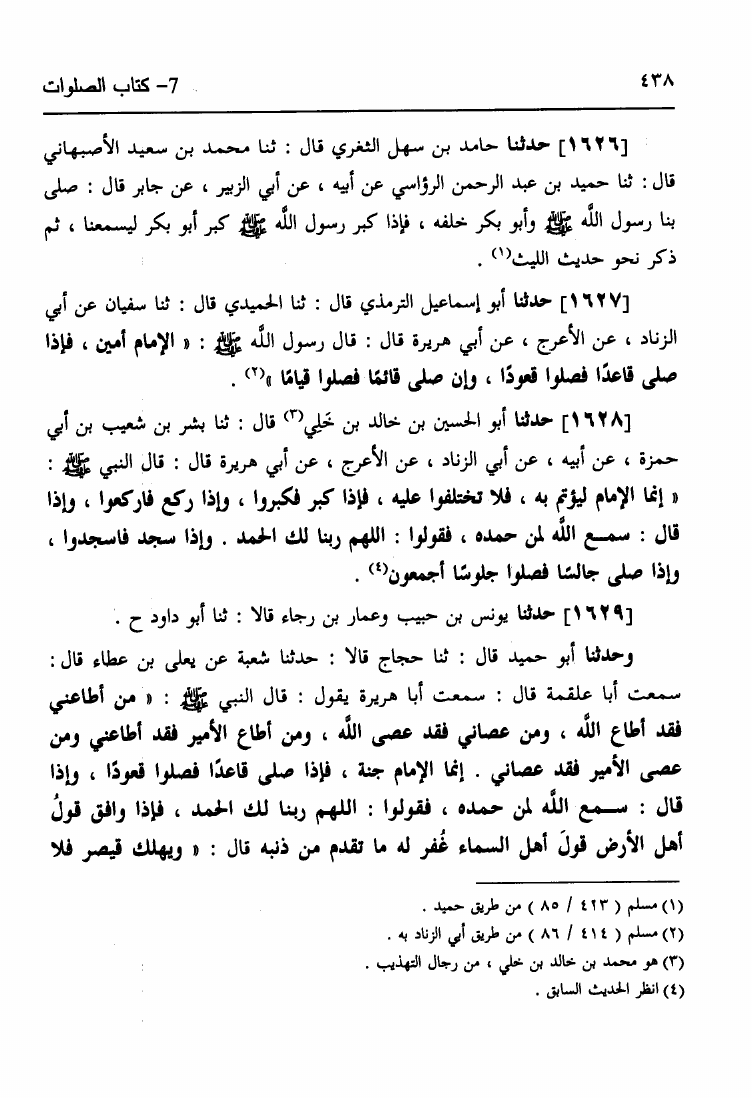 ٤٣٨
7- كتاب الصلوات
[١٦٢٦] حدثنا حامد بن سهل الثغري قال : ثنا محمد بن سعيد الأصبهاني
قال : ثنا حميد بن عبد الرحمن الرؤاسي عن أبيه ، عن أبي الزبير ، عن جابر قال : صلى
بنا رسول اللَّه ﷺ وأبو بكر خلفه ، فإذا كبر رسول اللَّه ﷺ كبر أبو بكر ليسمعنا ، ثم
ذكر نحو حديث الليث(١) .
[١٦٢٧] حدثنا أبو إسماعيل الترمذي قال : ثنا الحميدي قال : ثنا سفيان عن أبي
الزناد ، عن الأعرج ، عن أبي هريرة قال : قال رسول اللَّه ﷺ : « الإمام أمين ، فإذا
صلى قاعدًا فصلوا قعودًا ، وإن صلى قائمًا فصلوا قيامًا »(٢) .
[١٦٢٨] حدثنا أبو الحسين بن خالد بن خَلِي(٣) قال : ثنا بشر بن شعيب بن أبي
حمزة ، عن أبيه ، عن أبي الزناد ، عن الأعرج ، عن أبي هريرة قال : قال النبي ﷺ :
« إنما الإمام ليؤتم به ، فلا تختلفوا عليه ، فإذا كبر فكبروا ، وإذا ركع فاركعوا ، وإذا
قال : سمع اللَّه لمن حمده ، فقولوا : اللهم ربنا لك الحمد . وإذا سجد فاسجدوا ،
وإذا صلى جالسًا فصلوا جلوسًا أجمعون(٤) .
[١٦٢٩] حدثنا يونس بن حبيب وعمار بن رجاء قالا : ثنا أبو داود ح .
وحدثنا أبو حميد قال : ثنا حجاج قالا : حدثنا شعبة عن يعلى بن عطاء قال :
سمعت أبا علقمة قال : سمعت أبا هريرة يقول : قال النبي ﷺ : « من أطاعني
فقد أطاع اللَّه ، ومن عصاني فقد عصى اللَّه ، ومن أطاع الأمير فقد أطاعني ومن
عصى الأمير فقد عصاني . إنما الإمام جنة ، فإذا صلى قاعدًا فصلوا قعودًا ، وإذا
قال : سمع اللَّه لمن حمده ، فقولوا : اللهم ربنا لك الحمد ، فإذا وافق قولُ
أهل الأرض قولَ أهل السماء غُفر له ما تقدم من ذنبه قال : « ويهلك قيصر فلا
(١) مسلم ( ٤٢٣ / ٨٥ ) من طريق حميد .
(٢) مسلم ( ٤١٤ / ٨٦ ) من طريق أبي الزناد به .
(٣) هو محمد بن خالد بن خلي ، من رجال التهذيب .
(٤) انظر الحديث السابق .